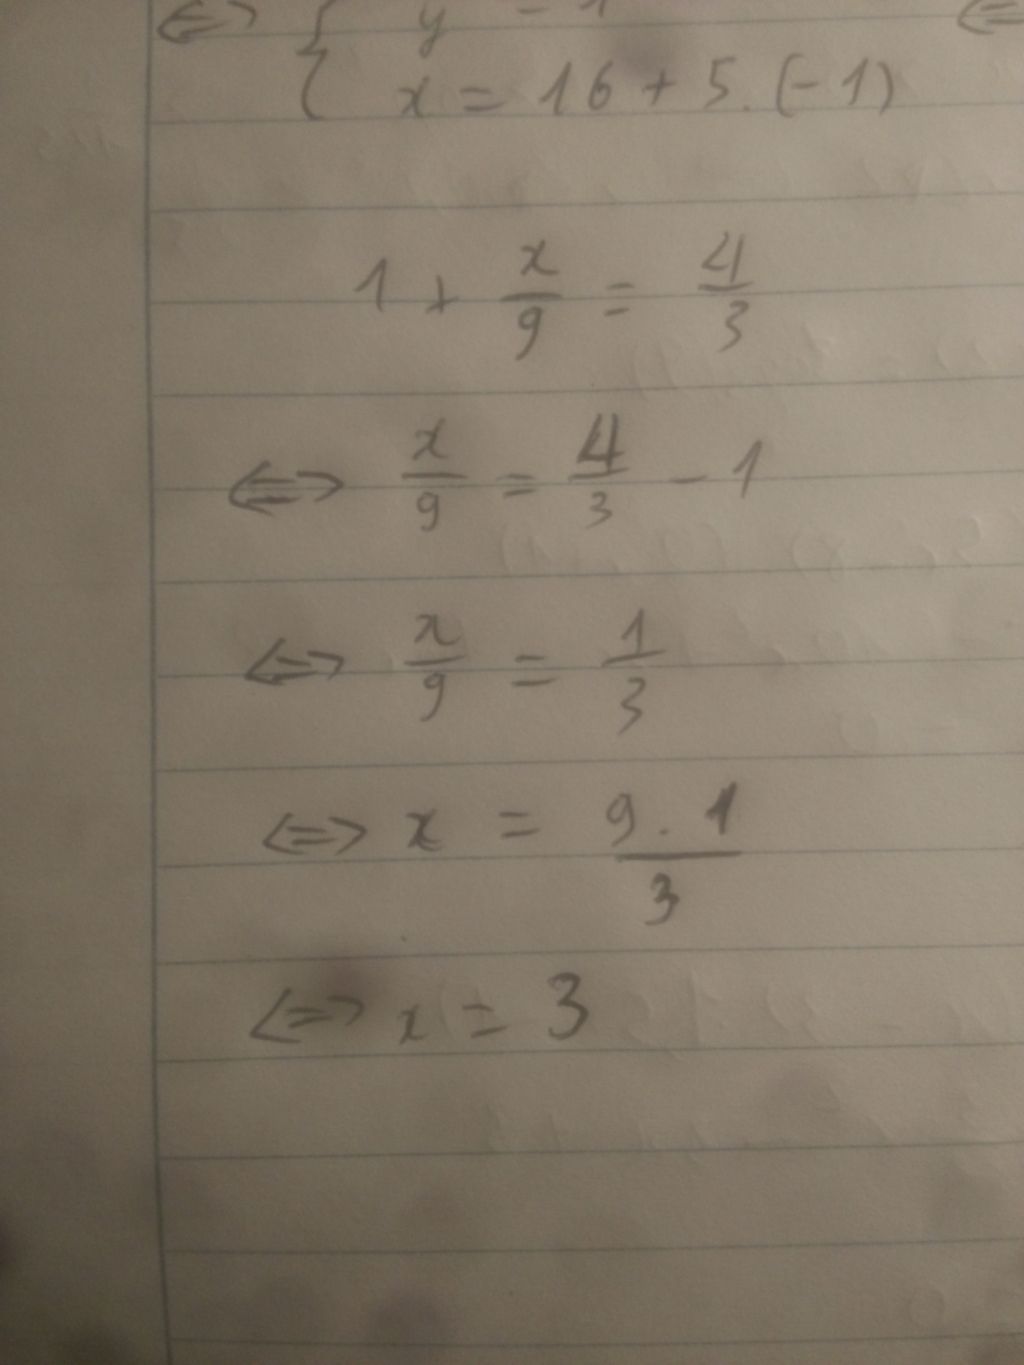 ⇔ { y = -1 ⇔
x = 16 + 5.(-1)
1 + x/9 = 4/3
⇔ x/9 = 4/3 - 1
⇔ x/9 = 1/3
⇔ x = 9.1/3
⇔ x = 3